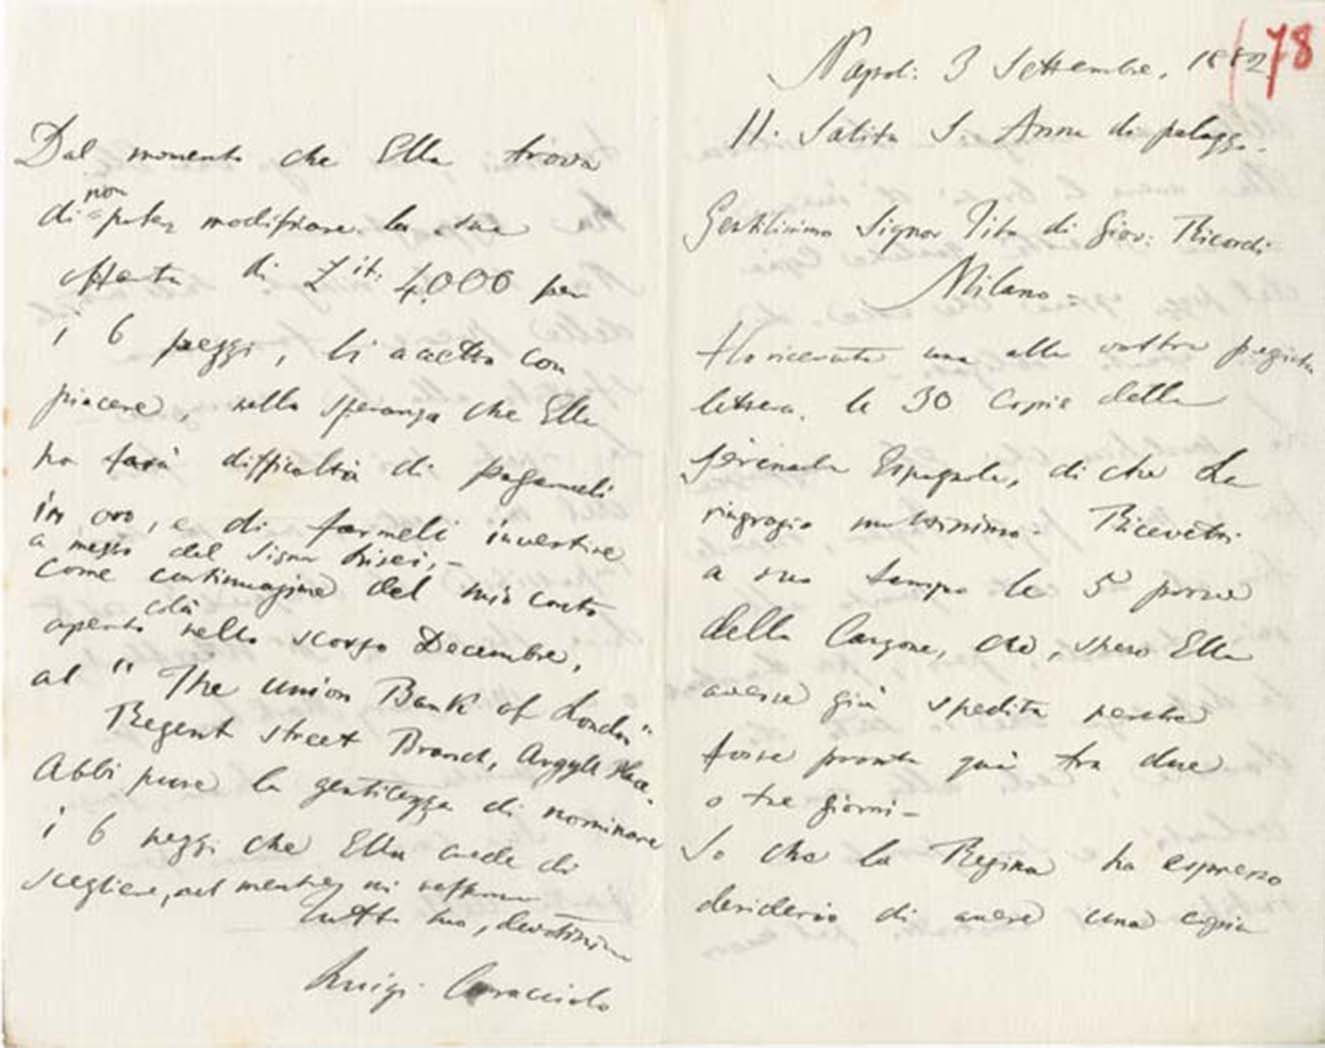 78
Napoli: 3 Settembre, 1882
11. Salita S. Anna di palazzo.
Gentilissimo Signor Tito di Giov: Ricordi
Milano
Ho ricevuto una alla vostra pregiata
lettera. le 30 Copie della
Serenata Espagnola, di che La
ringrazio moltissimo. Riceverò
a suo tempo le 5 prove
della Canzone, che, spero Ella
avesse già spedita perchè
fosse pronta quà tra due
o tre giorni –
So che la Regina ha espresso
desiderio di avere una copia
Dal momento che Ella trova
di non poter modificare la sua
offerta di Lit: 4,000 per
i 6 pezzi, li accetto con
piacere, nella speranza che Ella
no farà difficoltà di pagarmeli
in oro, e di farmeli investire
a mezzo del Signor
come continuazione del mio conto
aperto colà nello scorso Decembre,
al "The Union Bank of London"
Regent street Branch, Argyll Place.
Abbi pure la gentilezza di nominare
i 6 pezzi che Ella crede di
scegliere, nel mentre mi raffermo
tutto suo, devotissimo
Luigi Caracciolo